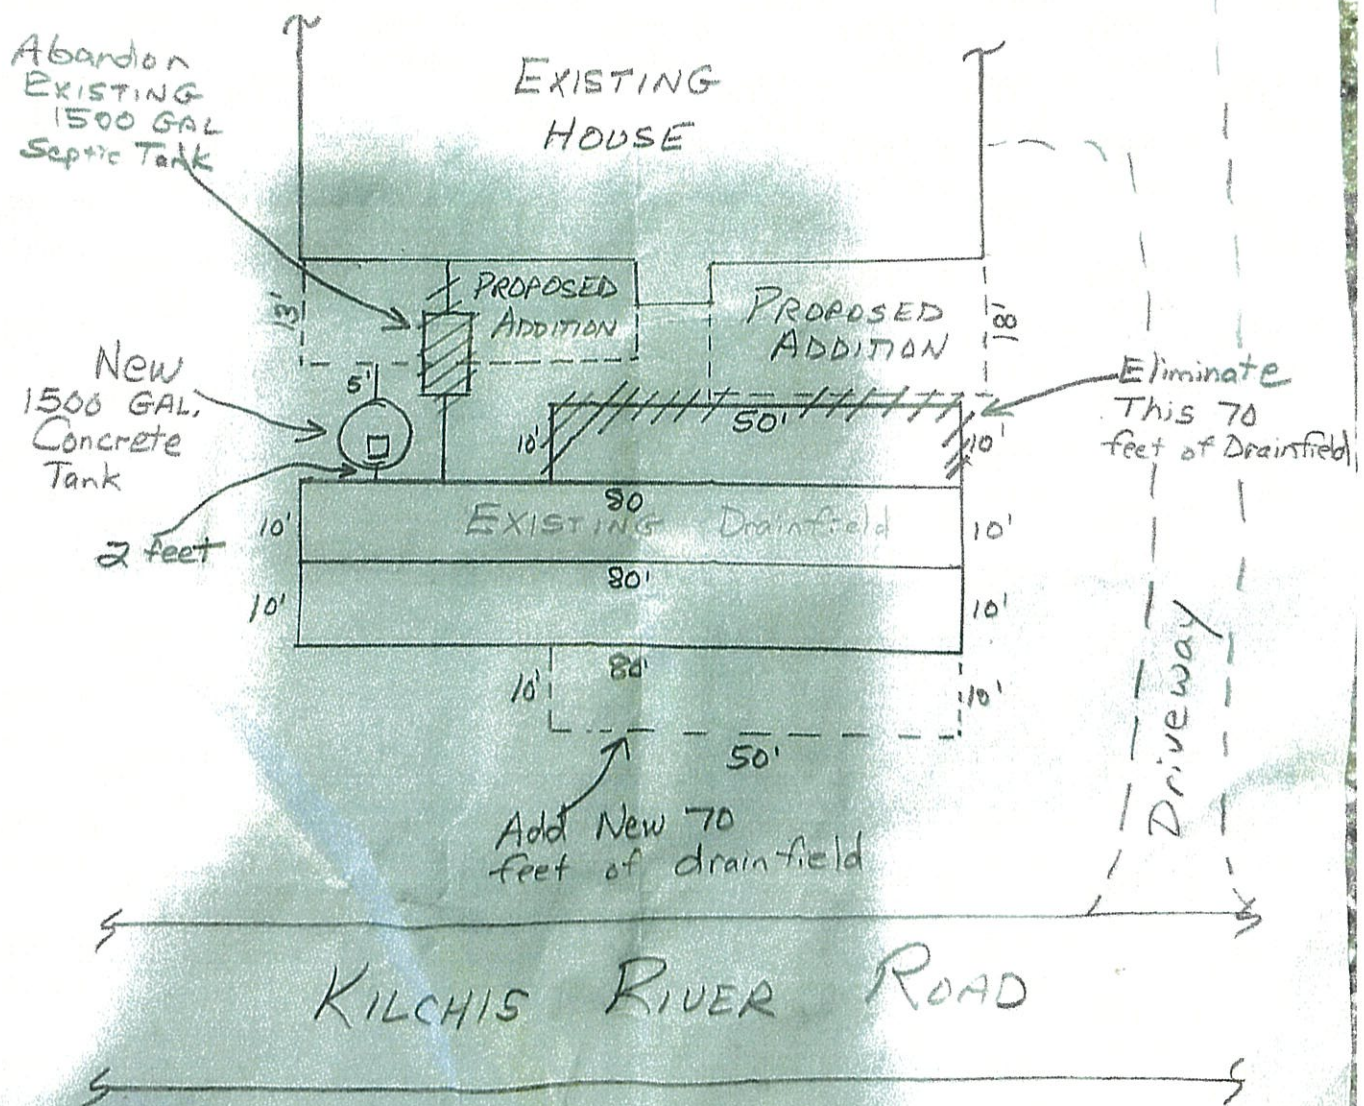 Abandon
EXISTING
1500 GAL
Septic Tank
EXISTING
HOUSE
13'
PROPOSED
ADDITION
PROPOSED
ADDITION
18'
New
1500 GAL.
Concrete
Tank
5'
2 feet
10'
50'
10'
Eliminate
This 70
feet of Drainfield
80
10'
EXISTING Drainfield
10'
80'
10'
10'
80'
10'
10'
50'
Add New 70
feet of drainfield
Driveway
KILCHIS RIVER ROAD